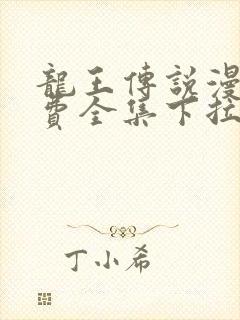 龍王傳說漫
費全集下拉
丁小希